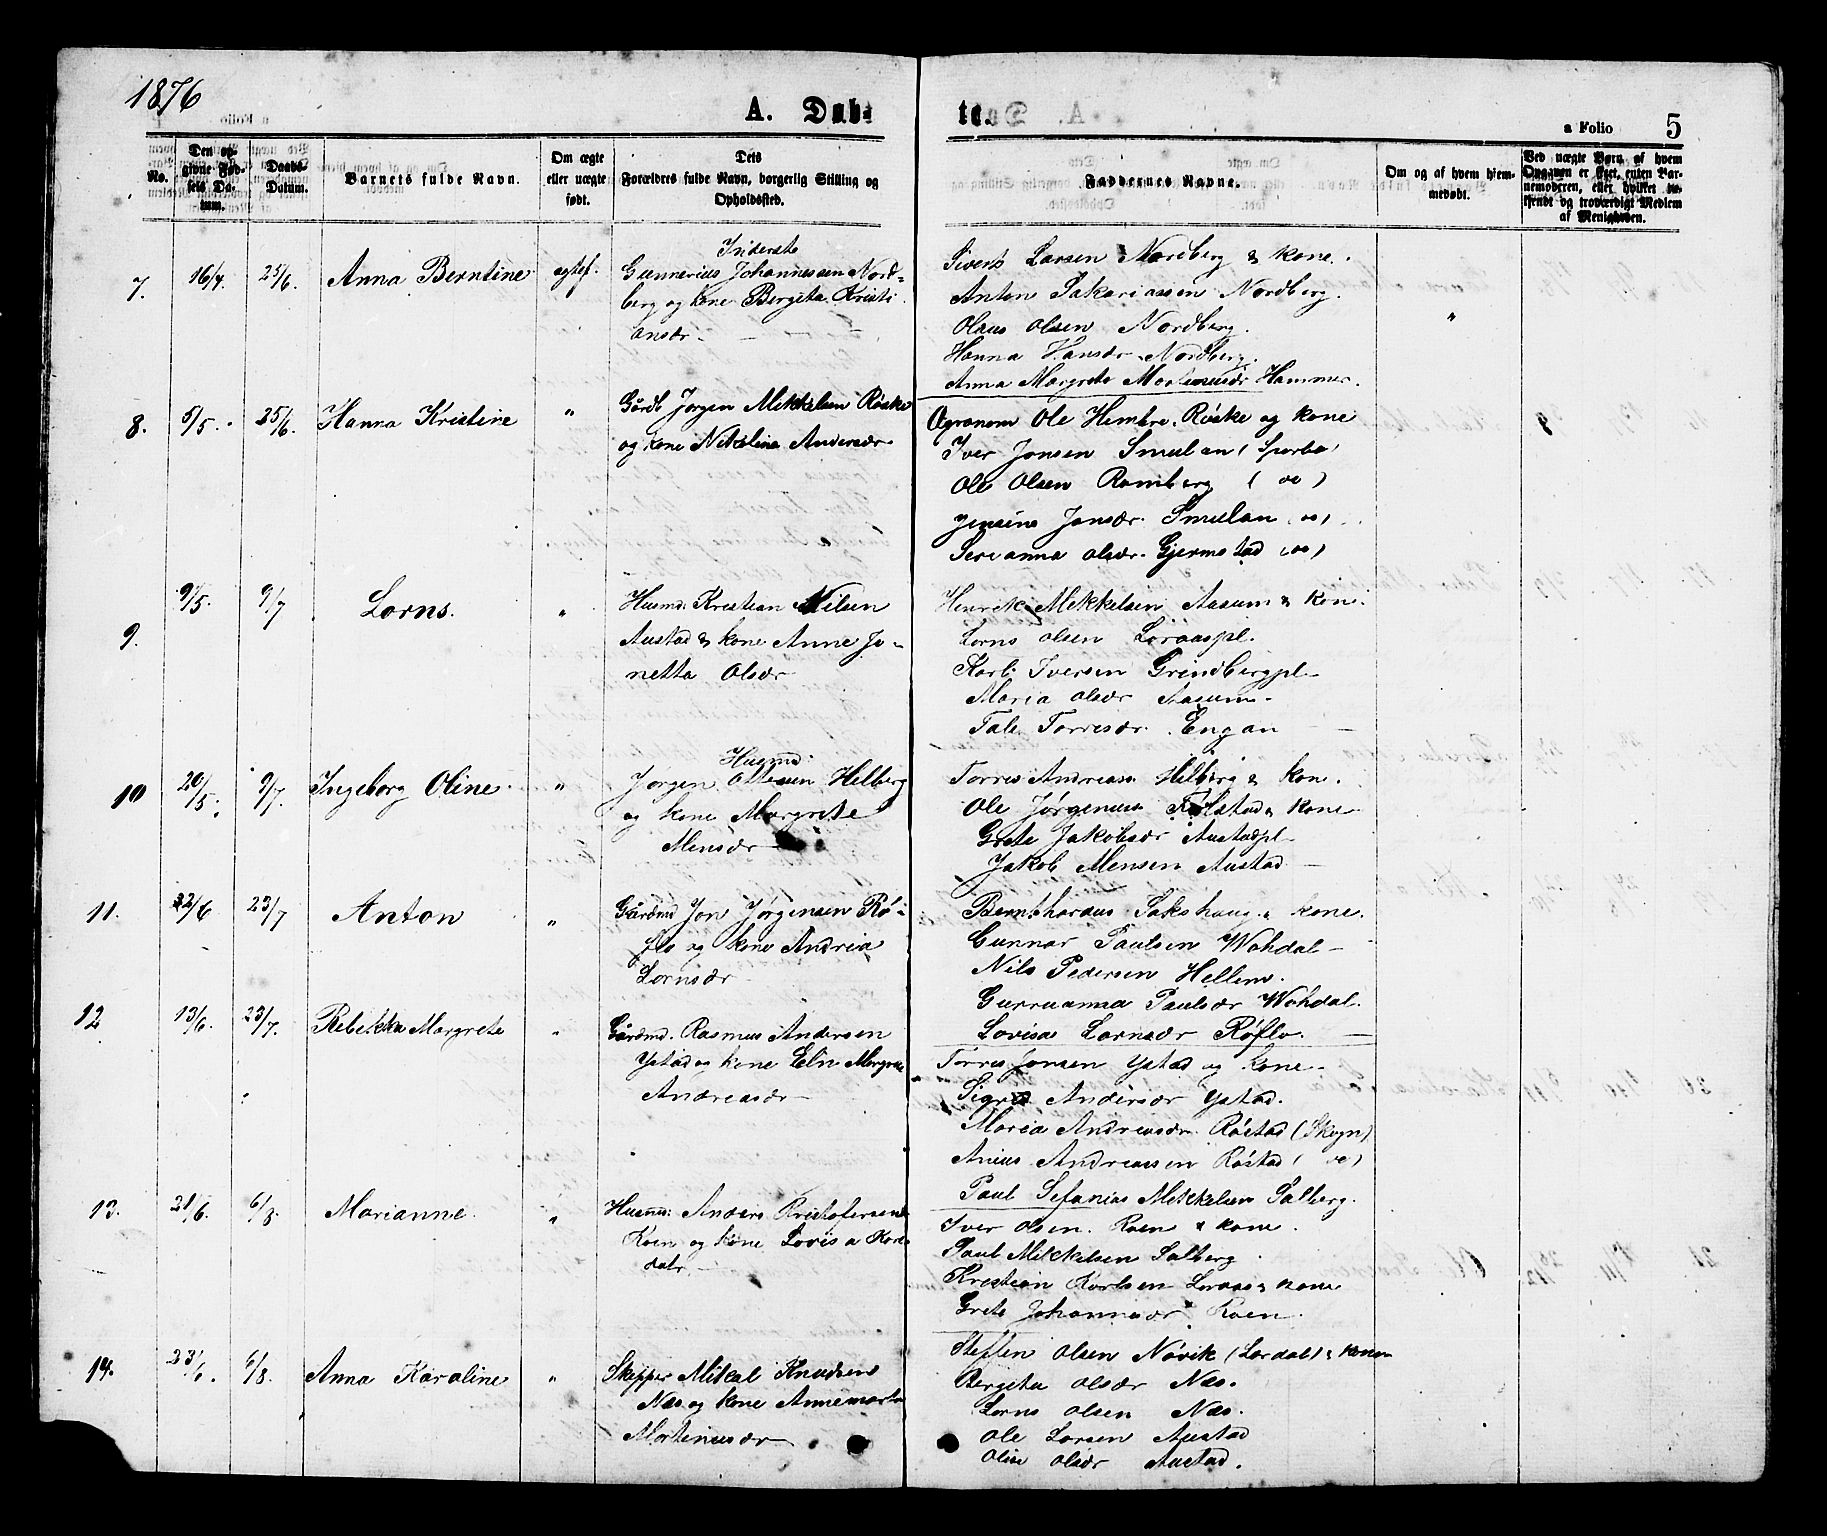 1876
A. Døbte.
a Folio 5
No.
Den opgivne Fødsels Datum.
Daabs-Datum.
Barnets fulde Navn.
Om ægte eller uægte født.
Dets Forældres fulde Navn, borgerlig Stilling og Opholdssted.
Faddernes Navne.
Om og af hvem hjemmedøbt.
Ved uægte Børn af hvem Opgaven er skeet, enten Barnemoderen, eller hvilket vidende og troværdigt Medlem af Menigheden.
7. 16/4. 25/6. Anna Berntine ægtef.
Inderste
Gunnerius Johannessen Nord-
berg og kone Bergeta Kristi
ansdr
Sivert Larsen Nordberg & kone.
Anton Sakariassen Nordberg.
Olaus Olsen Nordberg.
Hanna Hansdr Nordberg.
Anna Margrete Mortinusdr Hammer.
"
8. 5/5. 25/6. Hanna Kristine "
Gårdb Jørgen Mikkelsen Røske
og kone Nikoline Andersdr
Agronom Ole Hembre, Røske og kone
Iver Jonsen Smulan (Sparbo)
Ole Olsen Ramberg ( do )
Jensine Jonsdr. Smulan (do)
Serianna Olsdr. Gjermstad (do)
9. 9/5. 9/7 Lorns. "
Husmd. Kristian Nilsen
Austad & kone Anne Jo-
netta Olsdr
Henrik Mikkelsen Aasum & kone.
Lorns Olsen Løraaspl.
Karl Iversen Grindbergpl
Maria Olsdr Aasum
Tale Torresdr. Engan
10 20/5. 9/7. Ingeborg Oline "
Husmd.
Jørgen Ottesen Helberg
og kone Margrete
Mensdr
Torres Andreass. Hilberg & kone.
Ole Jørgensen Følstad & kone
Grete Jakobsdr Austadpl
Jakob Mensen Austad
11. 22/6 23/7 Anton "
Gårdmd Jon Jørgensen Rø-
flo og kone Andrea
Lornsdr
Bernthardus Sakshaug & kone.
Gunnar Paulsen Wohdal
Nils Pedersen Hellem.
Gurruanna Paulsdr Wohdal.
Lovisa Lornsdr Røflo.
12 13/6. 23/7. Rebekka Margrete "
Gårdmd. Rasmus Andersen
Ystad og kone Eln Margrete
Andreasdr
Torres Jonsen Ystad og kone
Sigrid Andersdr Ystad.
Maria Andreasdr. Røstad (Skogn)
Anius Andreassen Røstad ( do )
Paul Sefanias Mikkelsen Salberg.
13. 21/6. 6/8. Marianne "
Husmd: Anders Kristofersen
Koen og kone Lovisa Karls
datr.
Iver Olsen. Koen & kone.
Paul Mikkelsen Salberg
Kristian Karlsen Loraas & kone
Grete Johannesdr. Koen.
14. 23/6. 6/8. Anna Karoline "
Skipper Mikal Knudsen
Næs og kone Annemarta
Mortinusdr
Steffen Olsen Növik (Lærdal) & kone
Bergeta Olsdr Næs.
Lorns Olsen Næs.
Ole Larsen Austad
Oline Olsdr Austad.